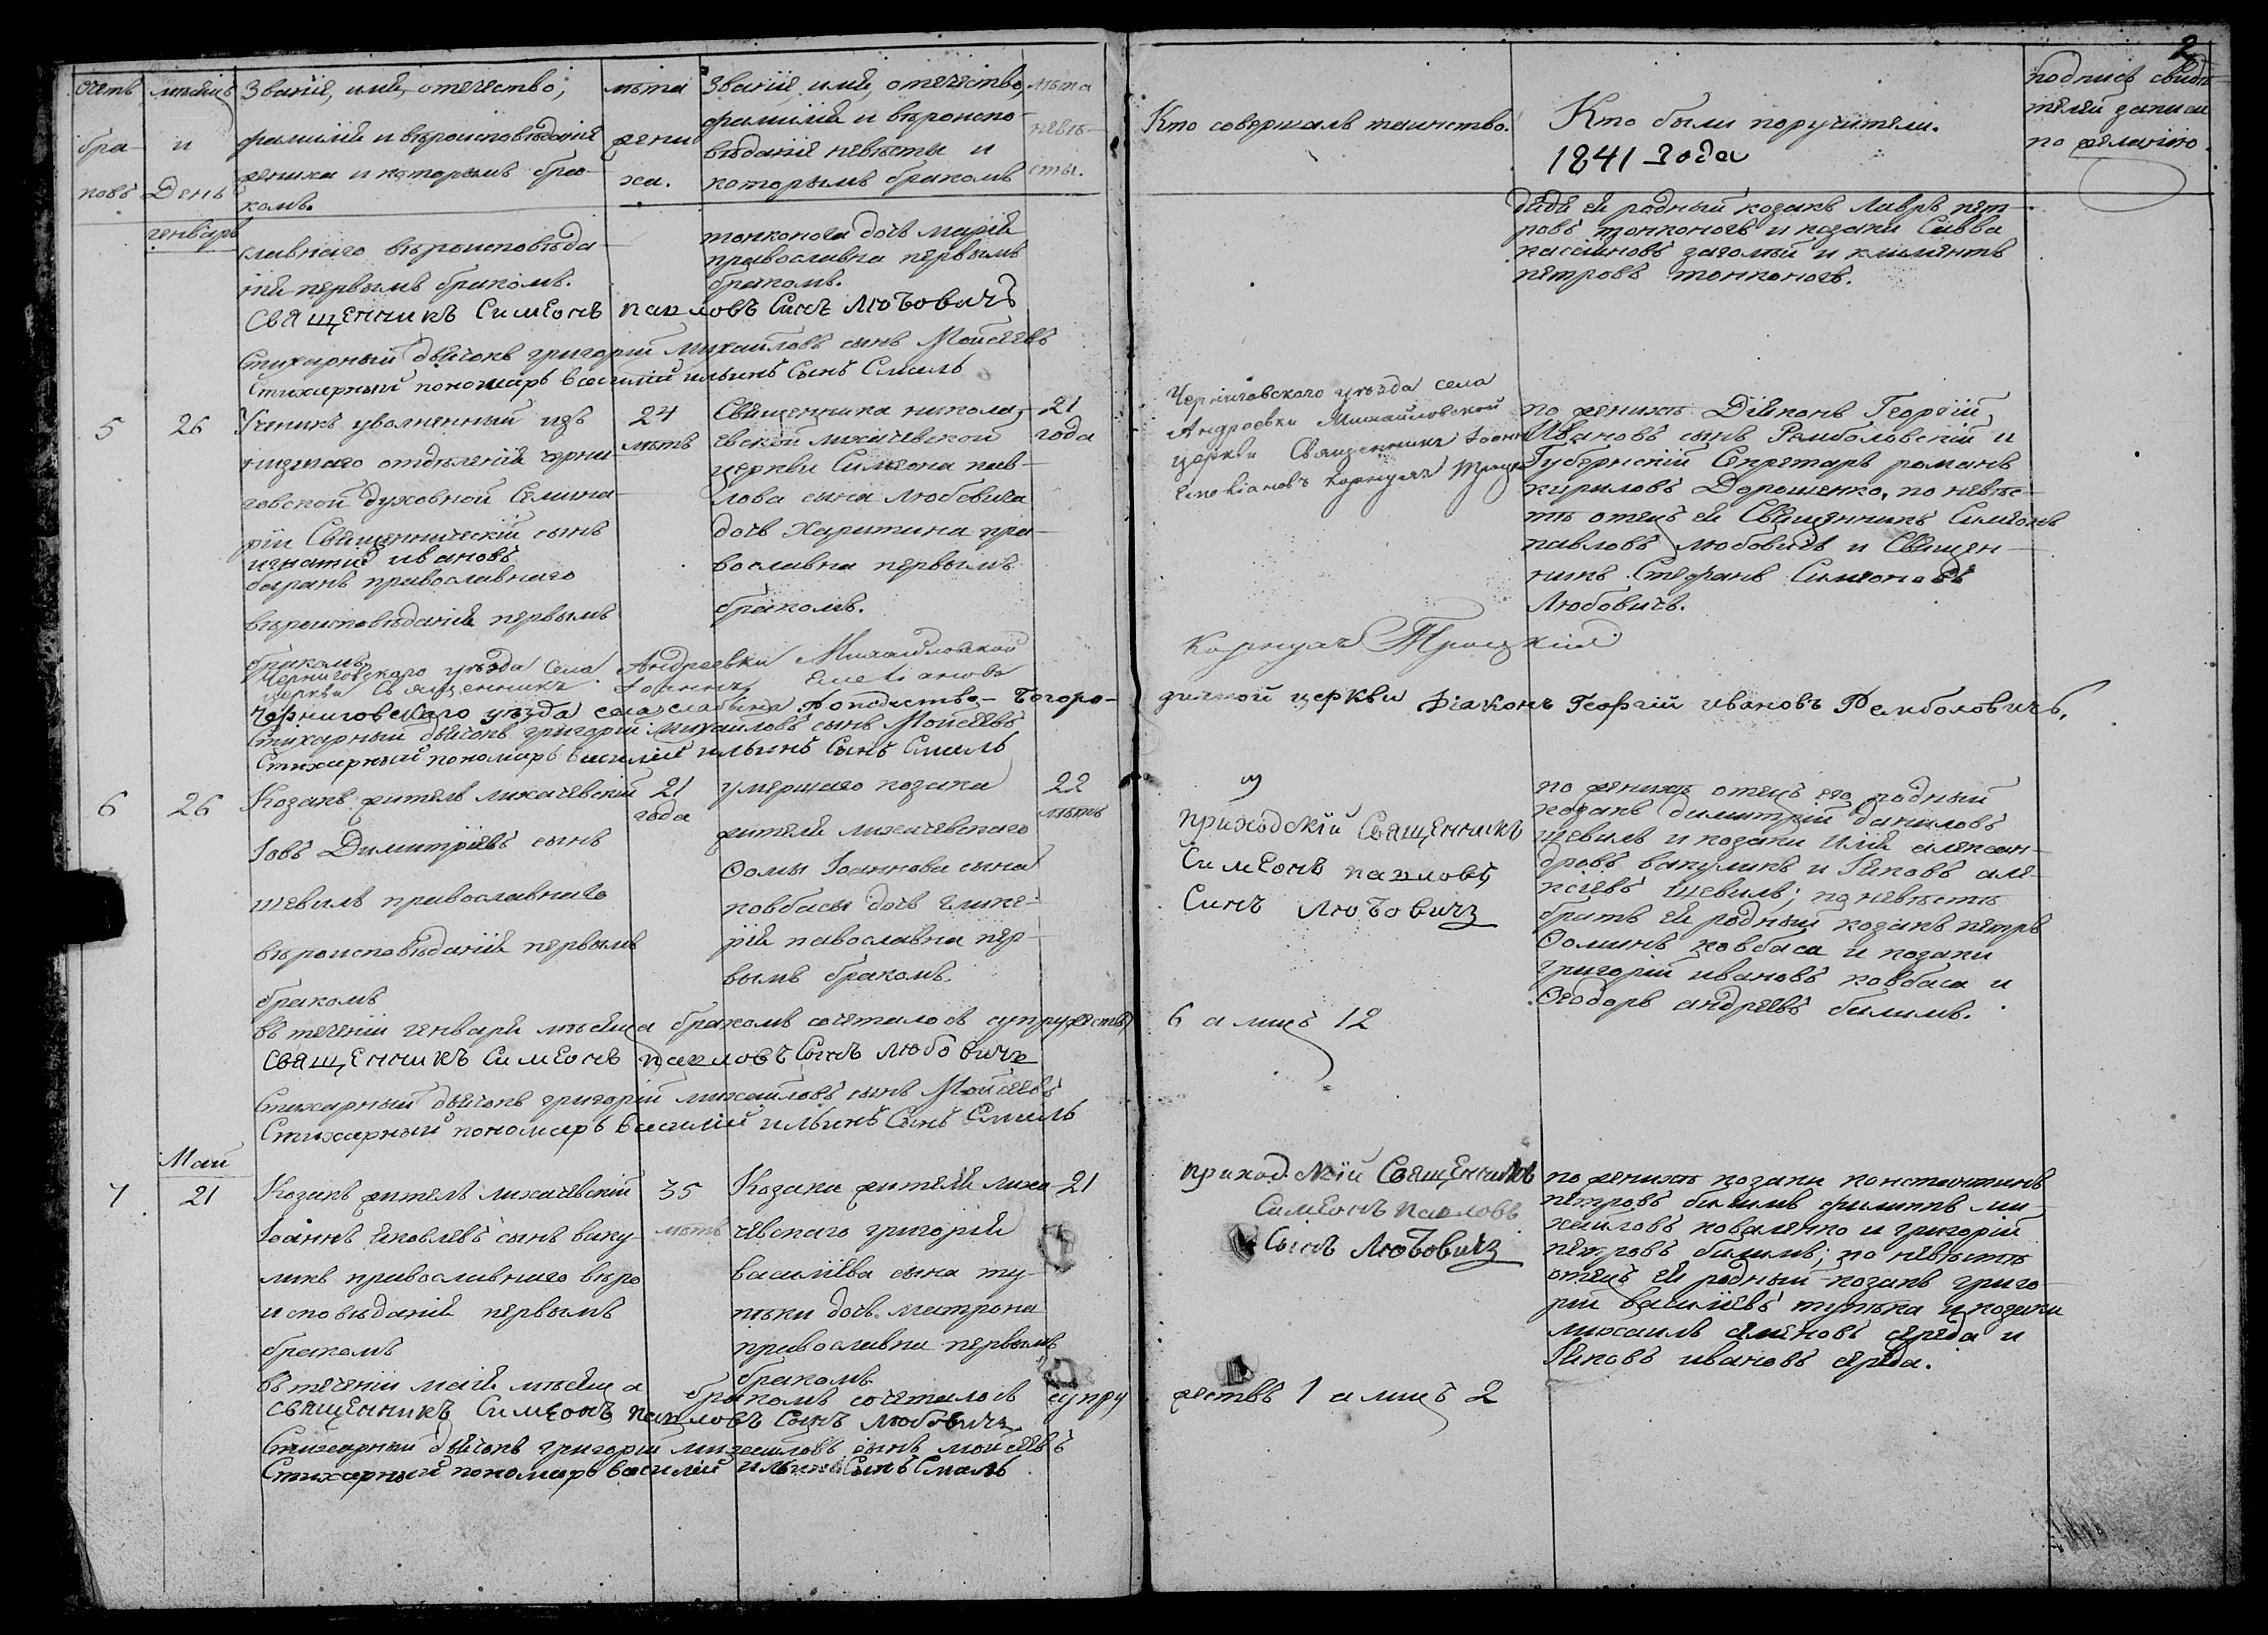 2
Счетъ бра-ковъ
мѣсяцъ и День
Званіе, имя, отечество,
фамилія и вѣроисповѣданіе
жениха и которымъ бра-
комъ.
лѣта
жени
ха.
Званіе, имя, отечество,
фамилія и вѣроиспо-
вѣданіе невѣсты и
которымъ бракомъ
лѣта
невѣ-
сты.
Кто совершалъ таинство.
Кто были поручители.
1841 года
подпись свидѣ
телей записи
по желанію.
генваря
славнаго вѣроисповѣда-
нія первымъ бракомъ.
тонконога дочь Марія
православна первымъ
бракомъ.
дядя ей родный козакъ Лавръ пет-
ровъ тонконогъ и козаки Савва
касіяновъ загомый и климентъ
петровъ тонконогъ.
Священникъ Симеонъ павловъ Сынъ Любовичъ
Стихарный дьячокъ григорій Михайловъ сынъ Мойсеевъ
Стихарный пономарь василій ильинъ Сынъ Смаль
5
26
Ученикъ уволненный изъ
низшаго отдѣленія черни-
говской духовной Семина-
ріи Священническій сынъ
игнатій ивановъ
баранъ православнаго
вѣроисповѣданія первымъ
бракомъ
24
лѣтъ
Священника никола-
евской лихачевской
церкви Симеона пав-
лова сына Любовича
дочь Харитина пра-
вославна первымъ
бракомъ.
21
года
Черниговского уѣзда села
Андреевки Михайловской
церкви Священникъ Іоаннъ
Емеліановъ Корнухъ Троцкій
по женихѣ Діяконъ Георгій,
Ивановъ сынъ Рамболовскій и
Губернскій Секретарь романъ
кириловъ Дорошенко, по невѣс-
тѣ отецъ ей Священникъ Симеонъ
павловъ Любовичъ и Священ-
никъ Стефанъ Симеоновъ
Любовичъ.
Черниговского уѣзда села Андреевки Михайловской
церкви Священникъ Іоаннъ Емеліановъ Корнухъ Троцкій
Черниговскаго уѣзда села слабина Рождество-Богоро-дичной церкви Діаконъ Георгій ивановъ Рамболовичъ.
Стихарный дьячокъ григорій Михайловъ сынъ Мойсеевъ
Стихарный пономарь василій ильинъ Сынъ Смаль
6
26
Козакъ житель лихачевскій
Іовъ Димитріевъ сынъ
шевиль православнаго
вѣроисповѣданія первымъ
бракомъ
21
года
умершаго козака
жителя лихачевскаго
Ѳомы Іоаннова сына
ковбасы дочь глике-
рія павославна пер-
вымъ бракомъ.
22
лѣтъ
приходскій Священникъ
Симеонъ павловъ
Сынъ Любовичъ
по женихѣ отецъ его родный
козакъ димитрій даниловъ
шевиль и козаки Илія алексан-
дровъ вакуликъ и Яковъ але-
ксіевъ шевиль; по невѣстѣ
братъ ей родный козакъ петръ
Ѳоминъ ковбаса и козаки
григорій ивановъ ковбаса и
Ѳеодоръ андреевъ билимъ.
въ теченіи генваря мѣсяца бракомъ сочеталось супружествъ 6 а лицъ 12
Священникъ Симеонъ павловъ Сынъ Любовичъ
Стихарный дьячокъ григорій михайловъ сынъ Мойсеевъ
Стихарный пономарь василій ильинъ Сынъ Смаль
Май
7
21
Козакъ житель лихачевскій
Іоаннъ Яковлевъ сынъ ваку-
ликъ православнаго вѣро
исповѣданія первымъ
бракомъ
35
лѣтъ
Козака жителя лиха-
чевскаго григорія
василіева сына ту-
пѣки дочь матрона
православна первымъ
бракомъ
21
приходскій Священникъ
Симеонъ павловъ
Сынъ Любовичъ
по женихѣ козаки константинъ
петровъ билимъ филиппъ ми-
хайловъ коваленко и григорій
петровъ билимъ; по невѣстѣ
отецъ ей родный козакъ григо-
рій василіевъ тупѣка и козаки
михаилъ семеновъ середа и
Яковъ ивановъ середа.
въ теченіи мая мѣсяца бракомъ сочеталось супру жествъ 1 а лицъ 2
Священникъ Симеонъ павловъ Сынъ Любовичъ
Стихарный дьячокъ григорій михайловъ сынъ мойсеевъ
Стихарный пономарь василій ильинъ Сынъ Смаль